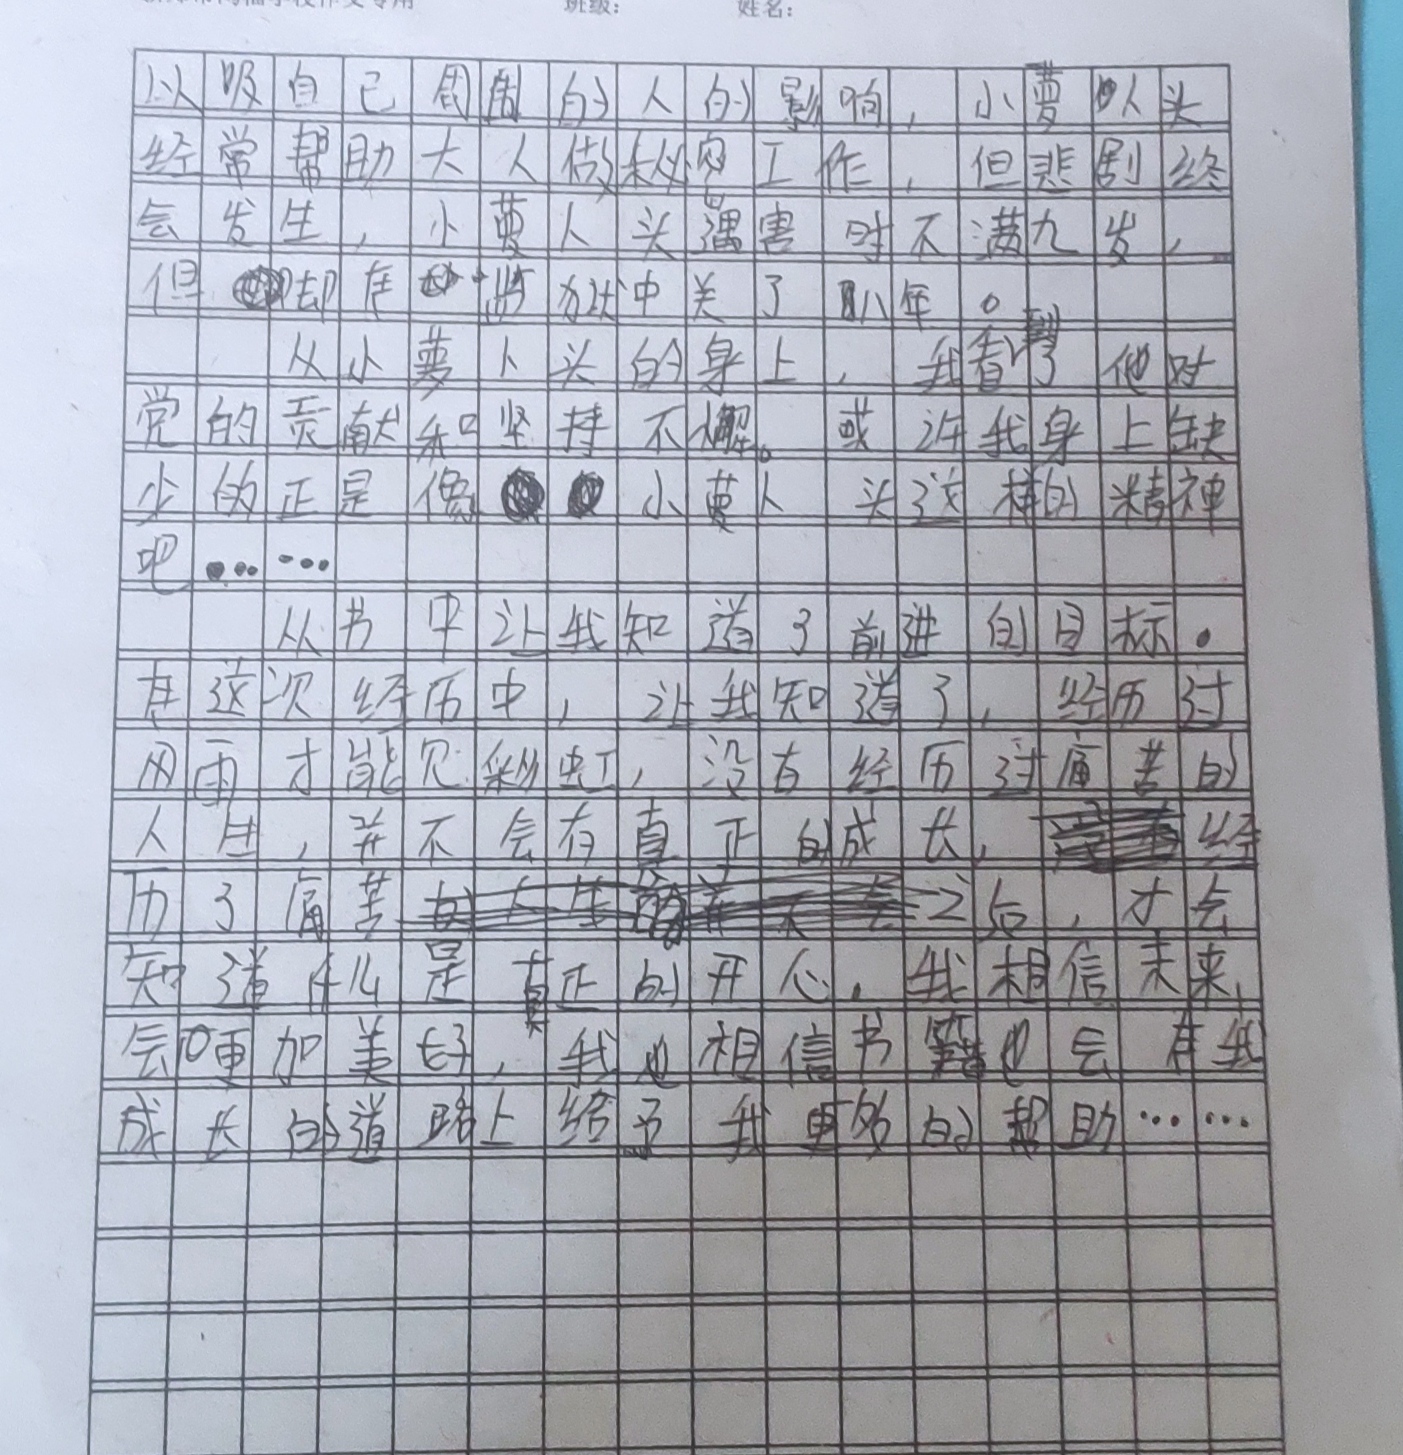 班级: 姓名:
以吸自己周围的人的影响，小萝卜头
经常帮助大人做秘密工作，但悲剧终
会发生，小萝卜头遇害时不满九岁，
但却在监狱中关了八年。
从小萝卜头的身上，我看到了他对
党的贡献和坚持不懈。或许我身上缺
少的正是像小萝卜头这样的精神
吧……
从书中让我知道了前进的目标。
在这次经历中，让我知道了，经历过
风雨才能见彩虹，没有经历过痛苦的
人生，并不会有真正的成长，经
历了痛苦之后，才会
知道什么是真正的开心。我相信未来，
会更加美好，我也相信书籍也会在我
成长的道路上给予我更多的帮助……